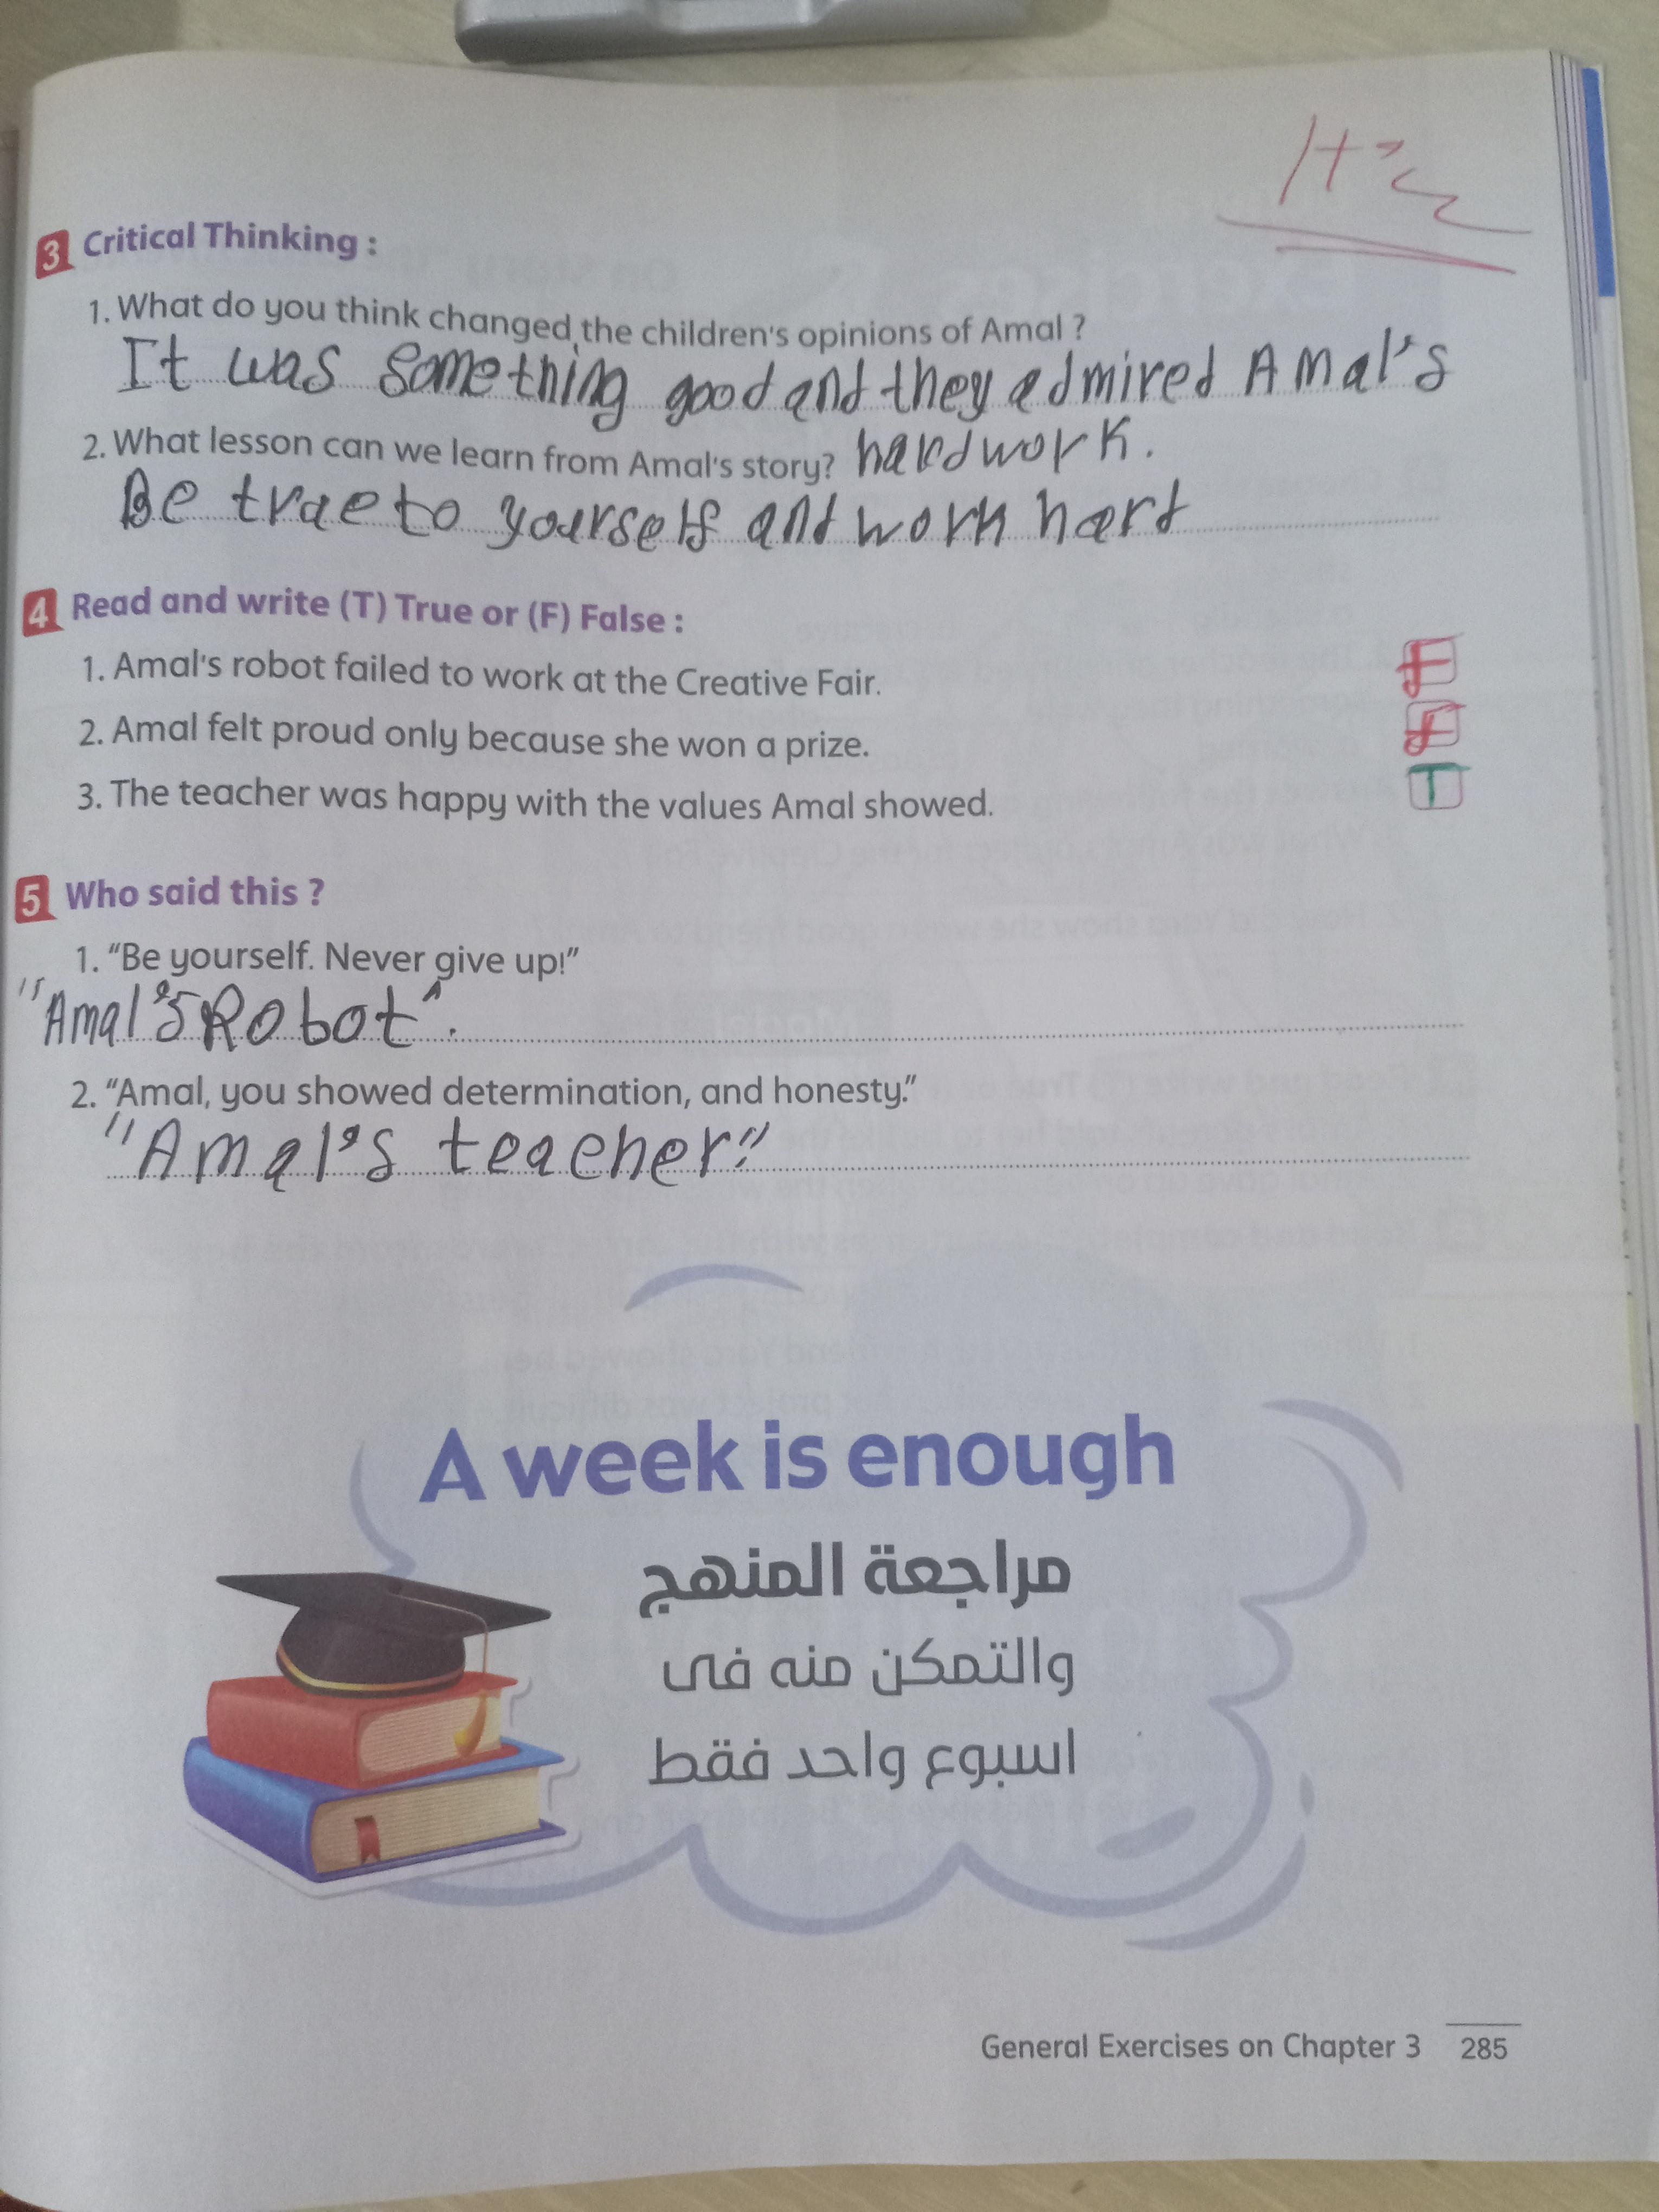 3 Critical Thinking :
1. What do you think changed the children's opinions of Amal ?
It was something good and they admired Amal's
hardwork.
2. What lesson can we learn from Amal's story?
Be true to yourself and work hard
4 Read and write (T) True or (F) False :
1. Amal's robot failed to work at the Creative Fair. F
2. Amal felt proud only because she won a prize. F
3. The teacher was happy with the values Amal showed. T
5 Who said this ?
1. “Be yourself. Never give up!”
"Amal's Robot".
2. “Amal, you showed determination, and honesty.”
"Amal's teacher."
A week is enough
مراجعة المنهج
والتمكن منه فى
اسبوع واحد فقط
General Exercises on Chapter 3 285